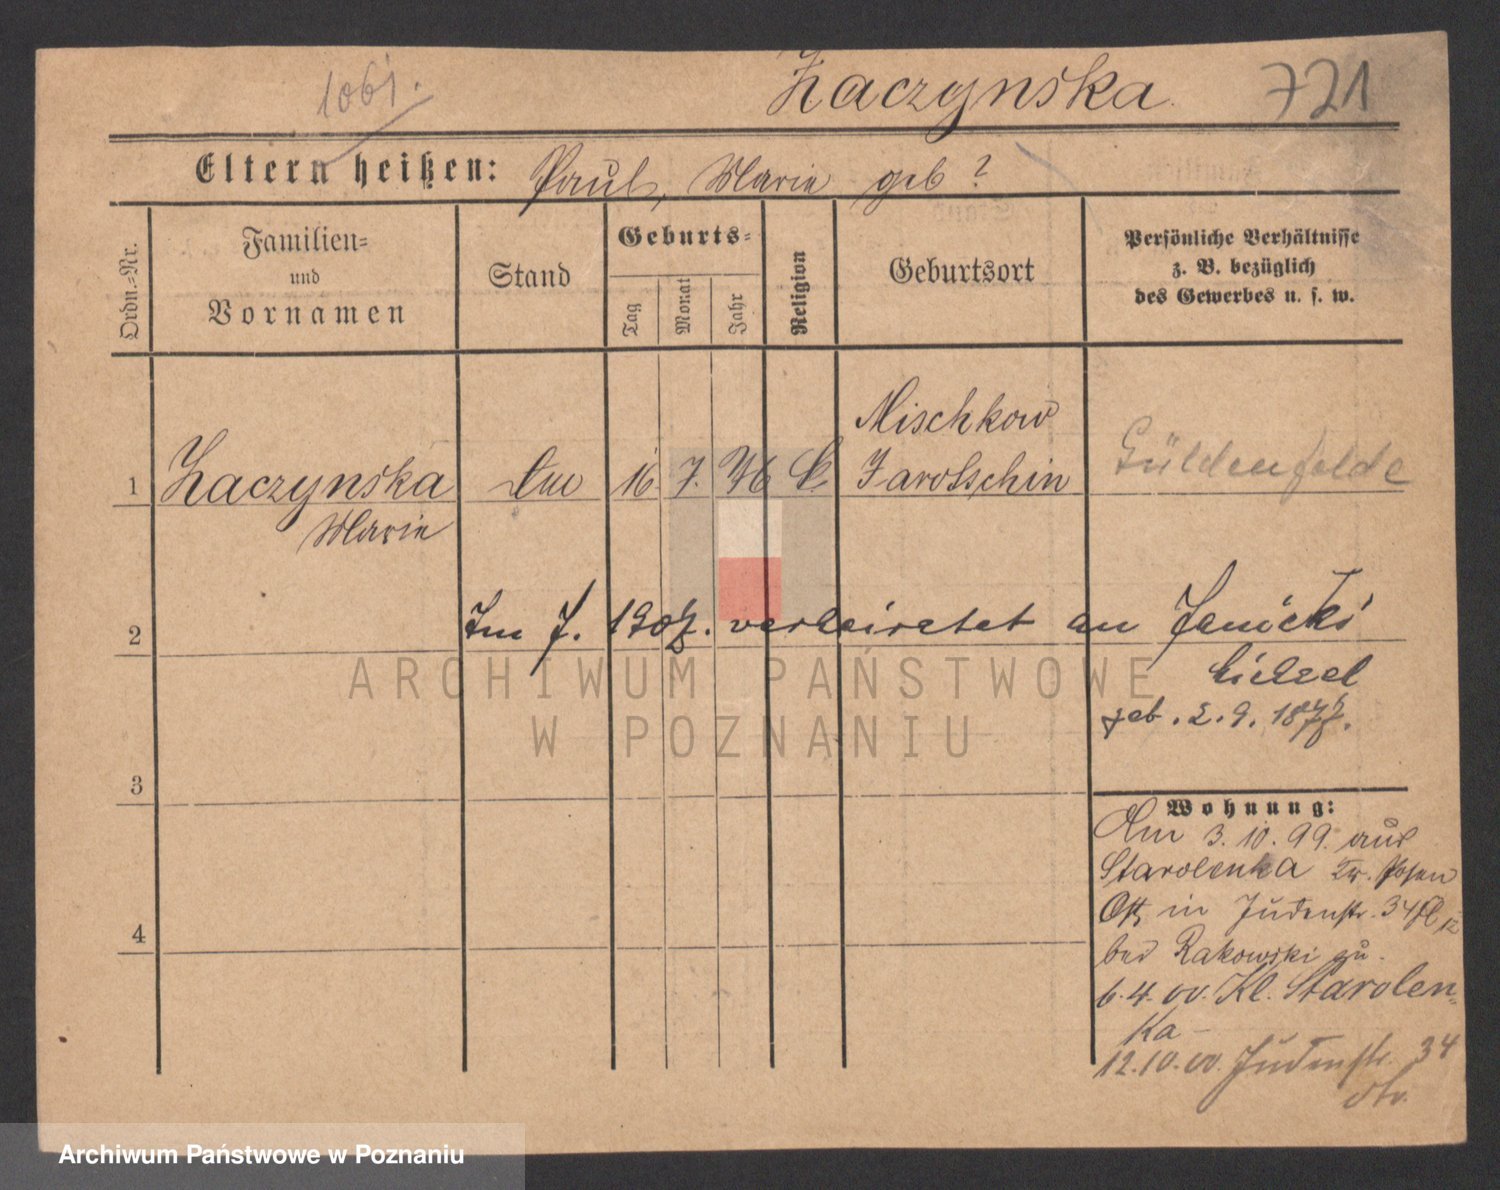 1061.
Laczynska
721
Eltern heißen: Paul, Marie geb?
Ordn.=Nr.
Familien=
und
Vornamen
Stand
Geburts=
Tag
Monat
Jahr
Religion
Geburtsort
Persönliche Verhältnisse
z. B. bezüglich
des Gewerbes u. s. w.
Mischkow
1 Laczynska 16 7. 76 Jarotschin Güldenfelde
Marie
2 Im J. 1907. verheiratet an Janicki
Michael
geb. 2.9.1877.
3
Wohnung:
Am 3.10.99. aus
Starolenka Kr. Posen
Ost, in Judenstr. 34
bei Rakowski zu.
6.4.00. Kl. Starolen=
ka
12.10.00. Judenstr. 34
4
ARCHIWUM PAŃSTWOWE
W POZNANIU
Archiwum Państwowe w Poznaniu